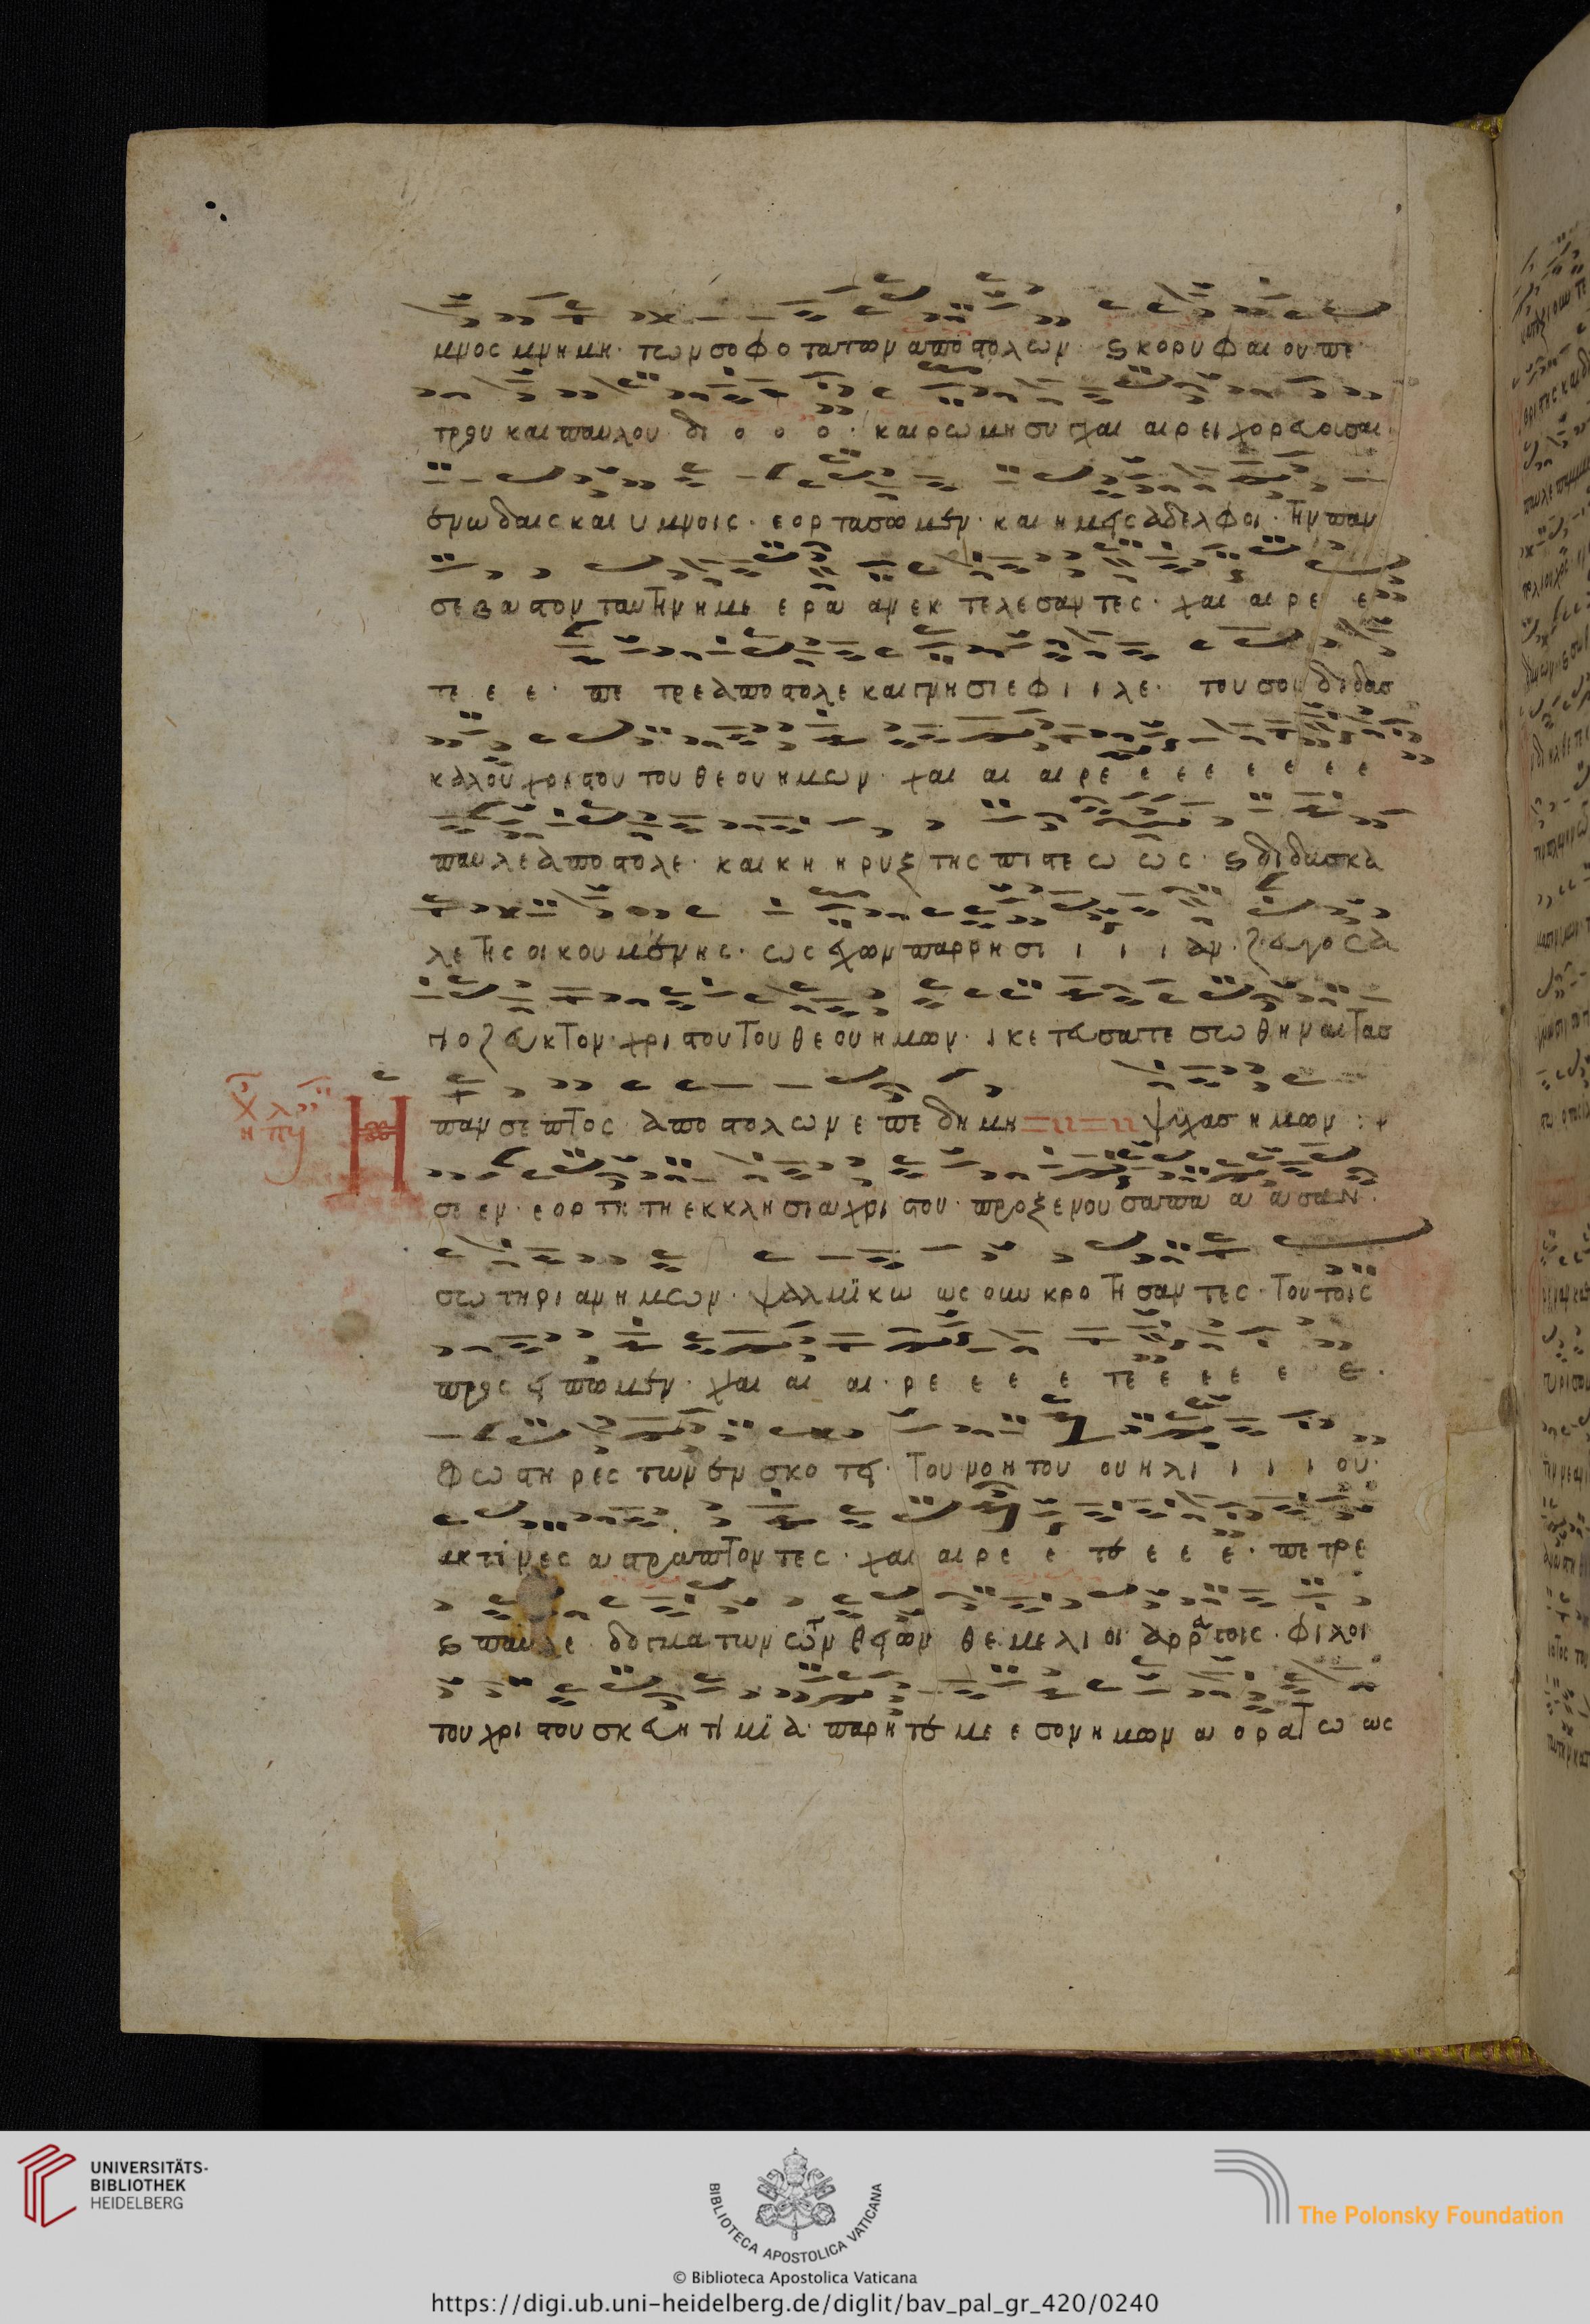 μνος μνημη· των σοφοτατων αποστολων· ϛ κορυφαιου πε
τρου και παυλου διοοο· και ρωμη συγχαιαιρει χορευουσαι
εν ωδαις και υμνοις· εορτασωμεν· και ημεις αδελφοι· την παν
σεβαστον ταυτην ημεεραναν εκτελεσαντες· χαιαιρεε
τεεε· πετρε αποστολε και γνησιε φιιιλε· του σου διδασ
καλου χριστου του θεου ημων· χαιαιαιρεεεεεεεε
παυλε αποστολε· και κηηρυξ της πιστεωως· ϛ διδασκα
λε της οικουμενης· ως εχων παρρησιιιιαν· ζευγος α
γιοζευκτον· χριστον τον θεον ημων· ικετευσατε σωθηναι τασ
ψυχασ ημων :
Η πανσεπτος αποστολων επεδημη
σεν· εορτη τη εκκλησια χριστου· προξενουσα παααασαν·
σωτηριαν ημων· ψαλμικωως ουν κροτησαντες· τουτοις
προσειπωμεν· χαιαιαι·ρεεεετεεεεεε·
φωστηρες των εν σκοτει· του νοητου ουηλιιιιιου·
ακτινες αστραπτοντες· χαιαιρεετεεεε· πετρε
ϛ παυλε δογματων των θειων θεμελιοι αρραγεις· φιλοι
του χριστου σκευη τιμια· παρητε μεεσον ημων αορατωως
UNIVERSITÄTS-
BIBLIOTHEK
HEIDELBERG
BIBLIOTECA APOSTOLICA VATICANA
The Polonsky Foundation
© Biblioteca Apostolica Vaticana
https://digi.ub.uni-heidelberg.de/diglit/bav_pal_gr_420/0240